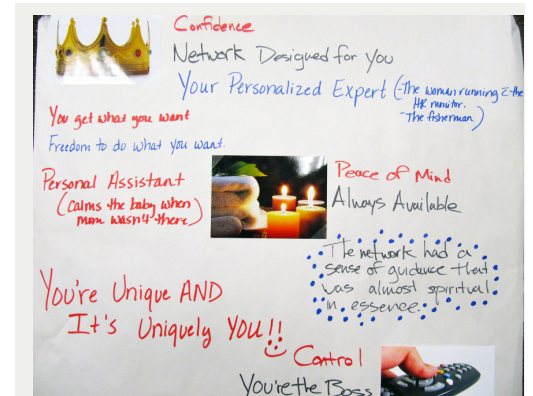 Confidence
Network Designed for You
Your Personalized Expert (-The woman running c̄ the
HR monitor.
-The fisherman)
You get what you want
Freedom to do what you want.
Personal Assistant
(calms the baby when
mom wasn't there)
Peace of Mind
Always Available
The network had a
sense of guidance that
was almost spiritual
in essence.
You're Unique AND
It's Uniquely YOU!!
Control
You're the Boss